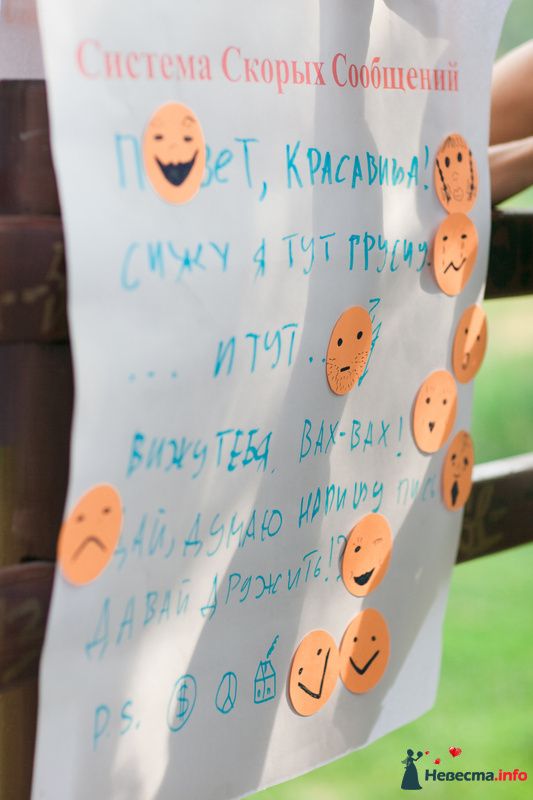 Система Скорых Сообщений
П вет, КРАСАВИЦА!
СИЖУ Я ТУТ ГРУСЧУ.
... И ТУТ..
ВИЖУ ТЕБЯ. ВАХ-ВАХ!
ДАЙ, ДУМАЮ НАПИШУ ПИСЬ
ДАВАЙ ДРУЖИТЬ!?
P.S. $
Невеста.info